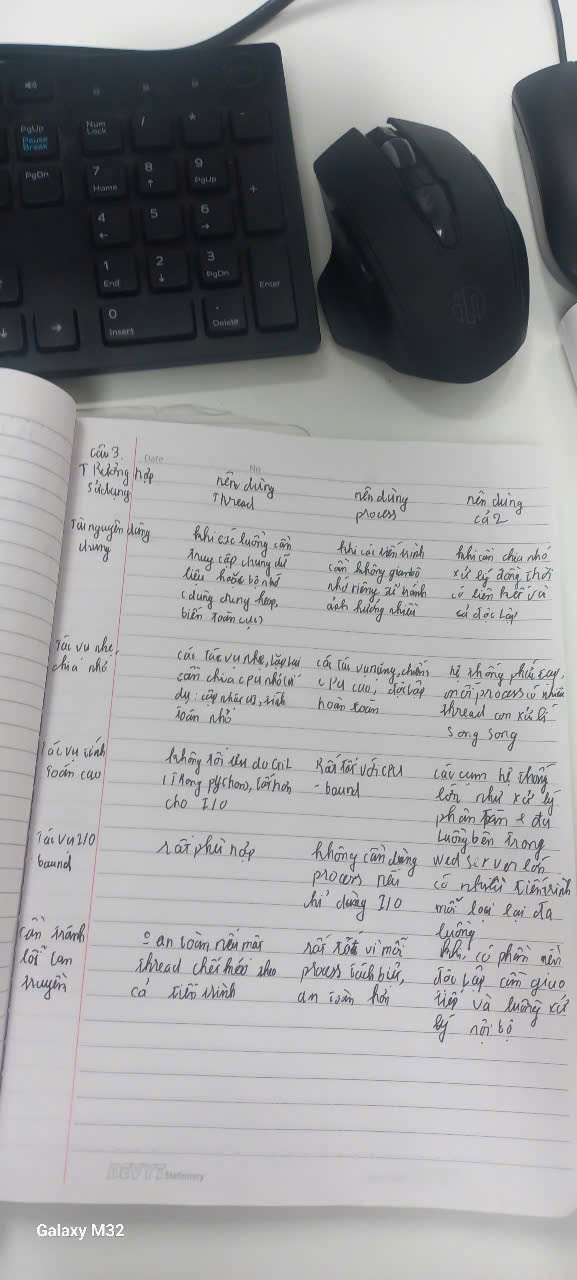 PgUp
Pause
Break
PgDn
Num
Lock
/
*
-
7
Home
8
↑
9
PgUp
+
4
←
5
6
→
1
End
2
↓
3
PgDn
Enter
0
Insert
.
Delete
hp
Câu 3.
Date
No
Trường hợp
sử dụng
nên dùng
Thread
nên dùng
process
nên dùng
cả 2
Tài nguyên dùng
chung
khi các luồng cần
truy cập chung dữ
liệu hoặc bộ nhớ
(dùng chung heap,
biến toàn cục)
khi các tiến trình
cần không gian bộ
nhớ riêng, để tránh
ảnh hưởng nhiều
khi cần chia nhỏ
xử lý đồng thời
có liên kết và
cả độc lập
Tác vụ nhẹ,
chia nhỏ
các tác vụ nhẹ, lặp lại
cần chia cpu nhỏ (ví
dụ: cập nhật UI, tính
toán nhỏ
các tác vụ nặng, chiếm
CPU cao, độc lập
hoàn toàn
hệ thống phức tạp,
mỗi process có nhiều
thread con xử lí
song song
Tác vụ tính
toán cao
không tối ưu do GIL
(trong python), tốt hơn
cho I/O
Rất tốt với CPU
-bound
các cụm hệ thống
lớn như xử lý
phân tán + đa
luồng bên trong
Tác vụ I/O
bound
rất phù hợp
không cần dùng
process nếu
chỉ dùng I/O
wed server lớn
có nhiều tiến trình
mỗi loại lại đa
luồng
cần tránh
lỗi lan
truyền
an toàn nếu một
thread chết kéo theo
cả tiến trình
rất tốt vì mỗi
process tách biệt,
an toàn hơn
khi có phần nên
độc lập cần giao
tiếp và luồng xử
lý nội bộ
DEVYT Stationery
Galaxy M32